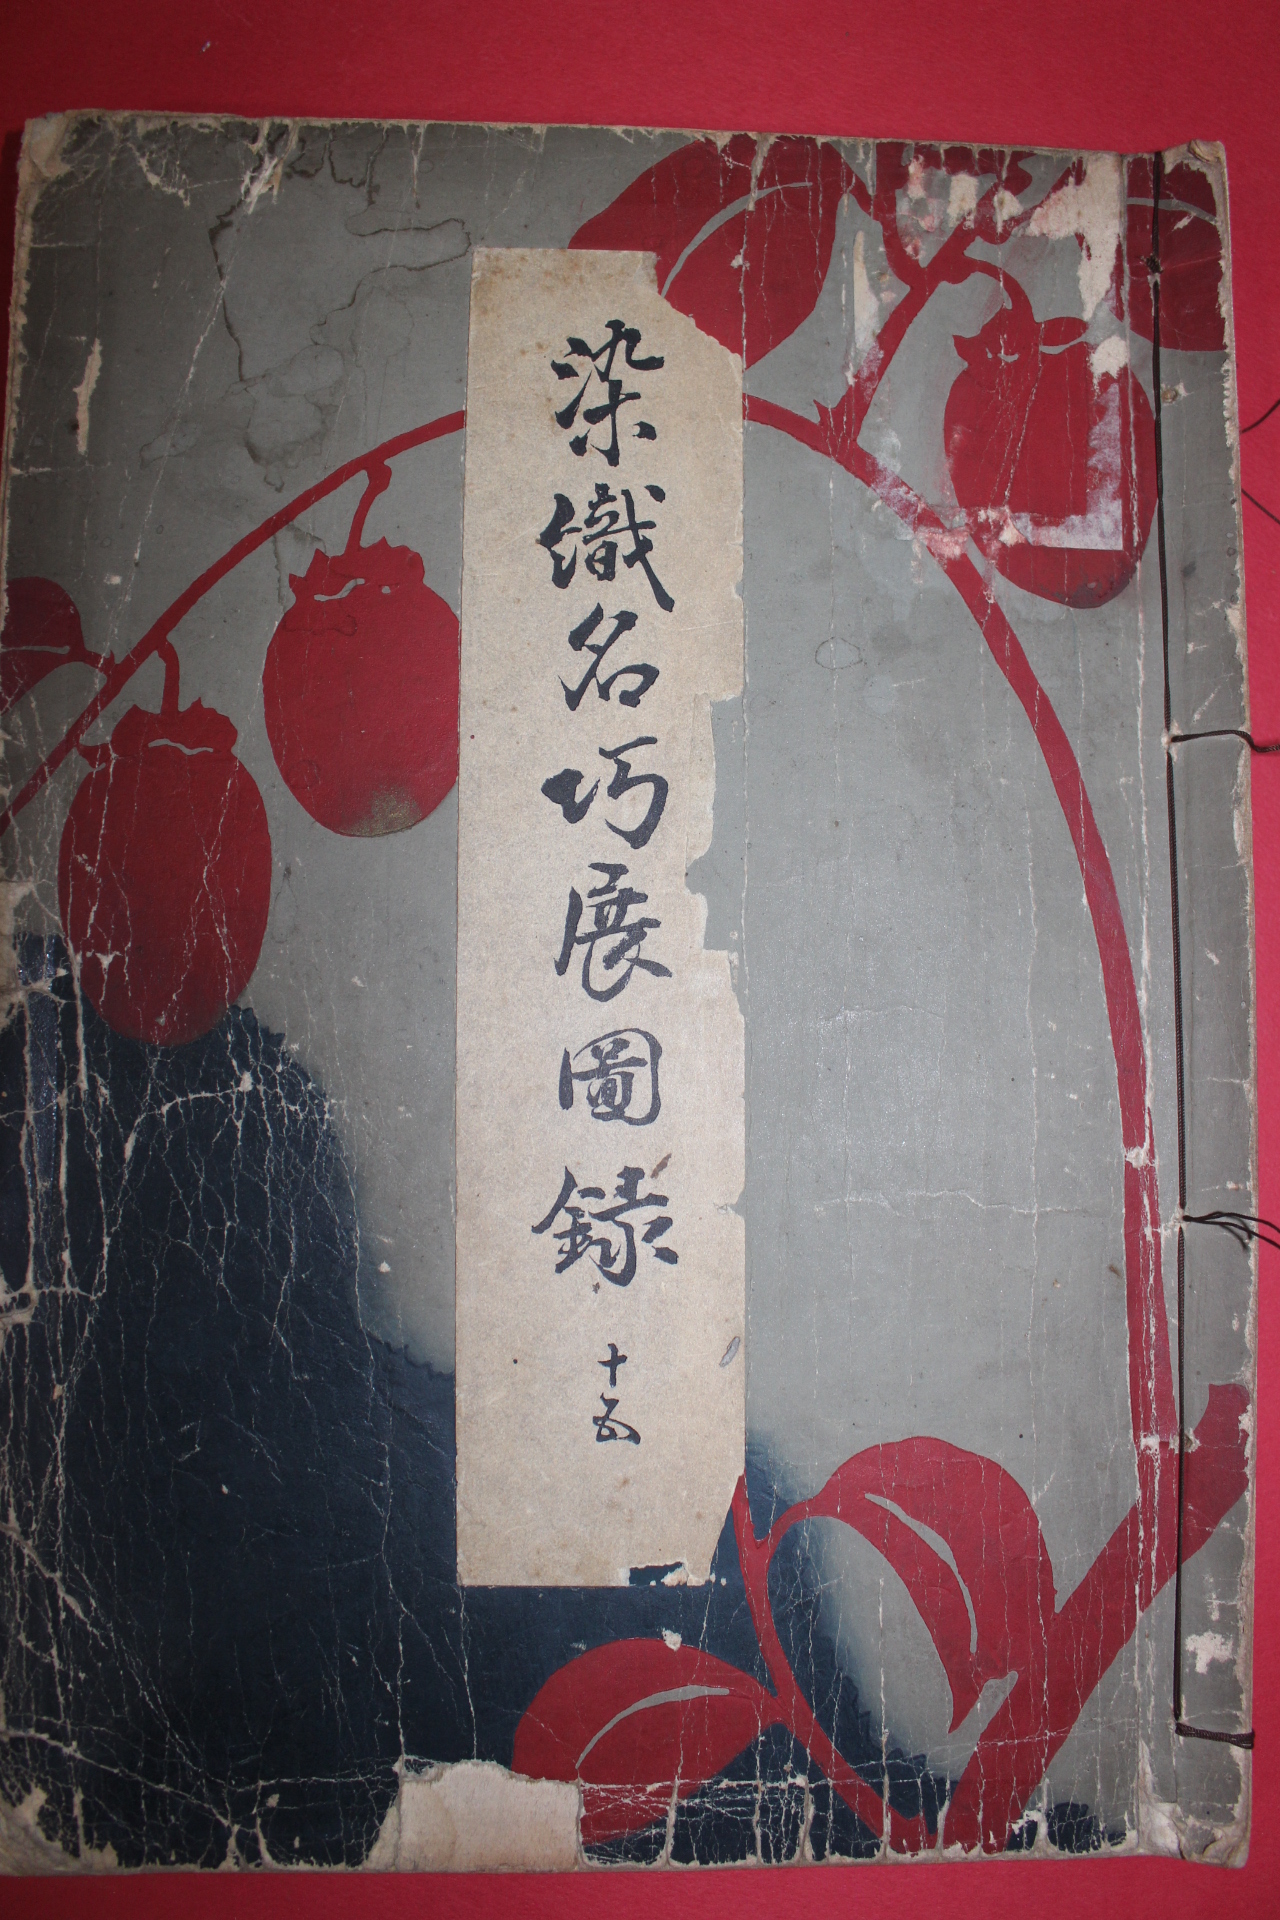 染織名巧展圖録 十五